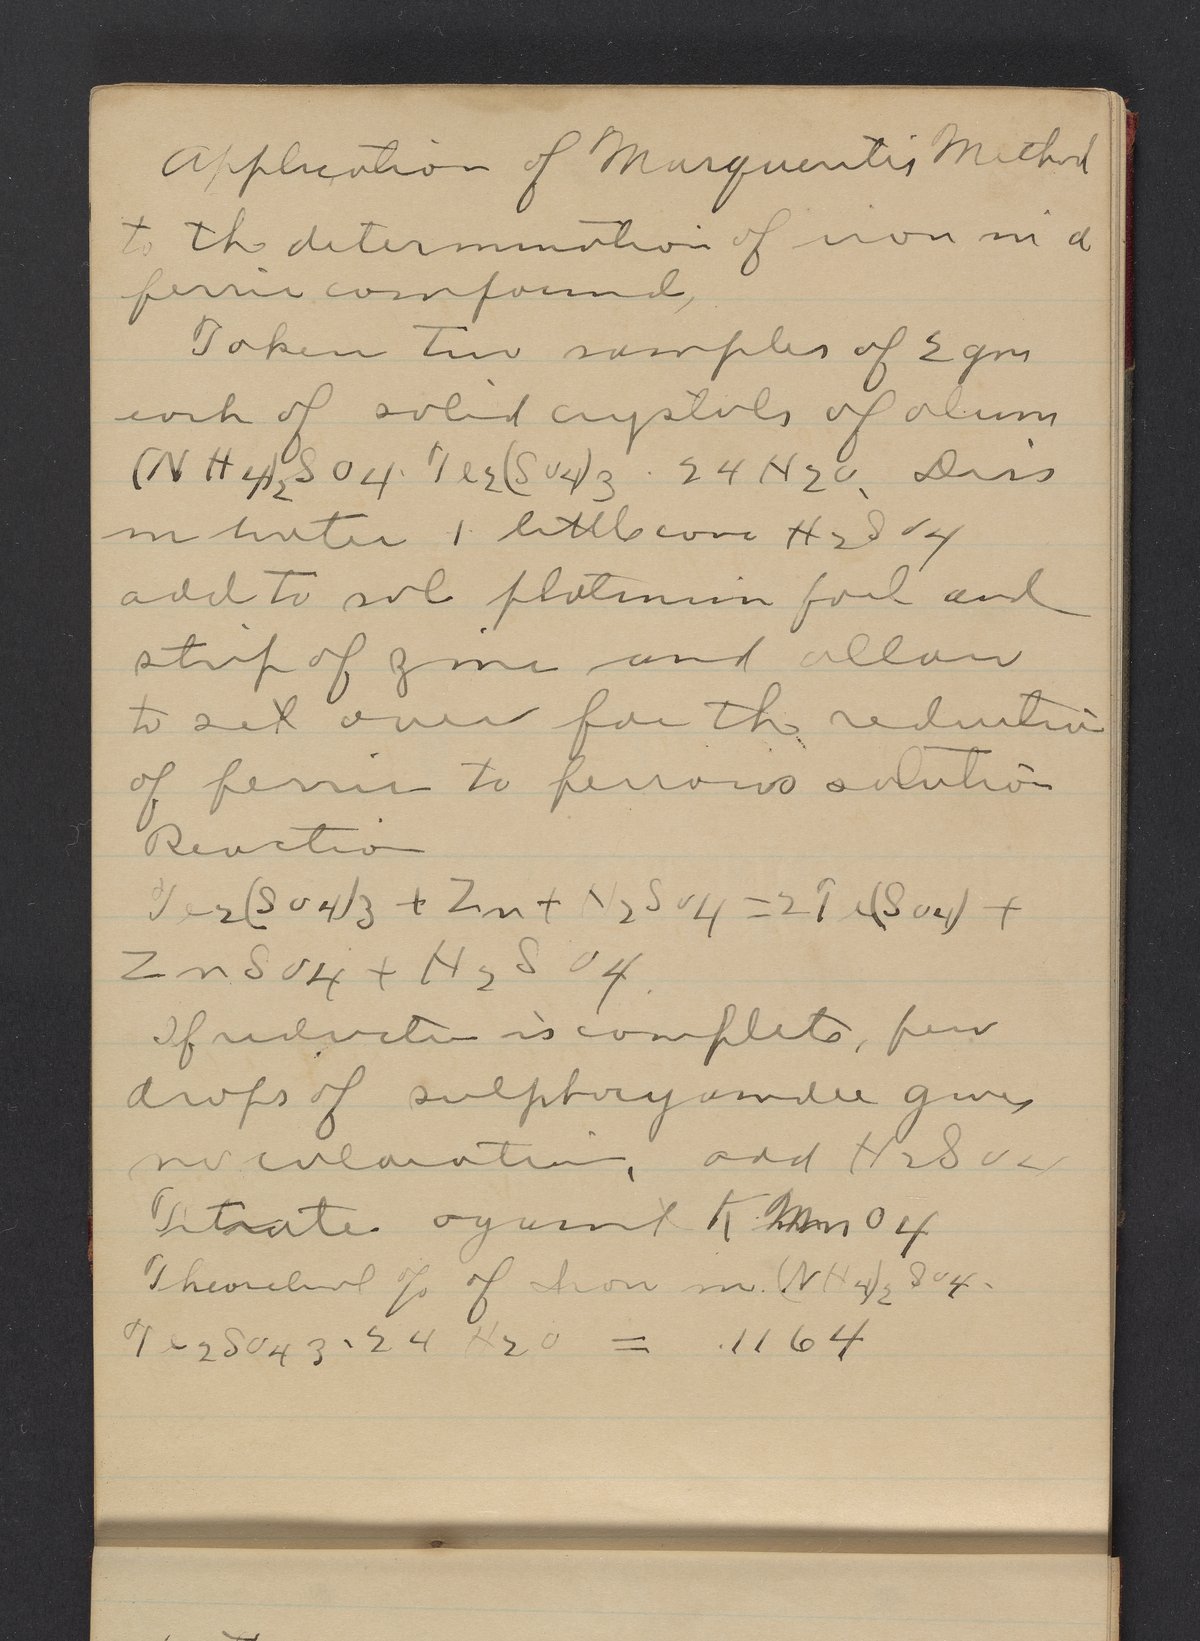 Application of Marguerite's Method
to the determination of iron in a
ferric compound,
Taken two samples of 2 gm
each of solid crystals of alum
(NH4)2SO4. Fe2(SO4)3 . 24 H2O. Diss
in water, little conc H2SO4
add to sol platinum foil and
strip of zinc and allow
to set over for the reduction
of ferric to ferrous solution
Reaction
Fe2(SO4)3 + Zn + H2SO4 = 2Fe(SO4) +
ZnSO4 + H2SO4.
If reduction is complete, few
drops of sulphocyanide gives
no coloration, add H2SO4
Titrate against K MnO4
Theoretical % of Iron in (NH4)2SO4.
Fe2SO43.24 H2O = .1164